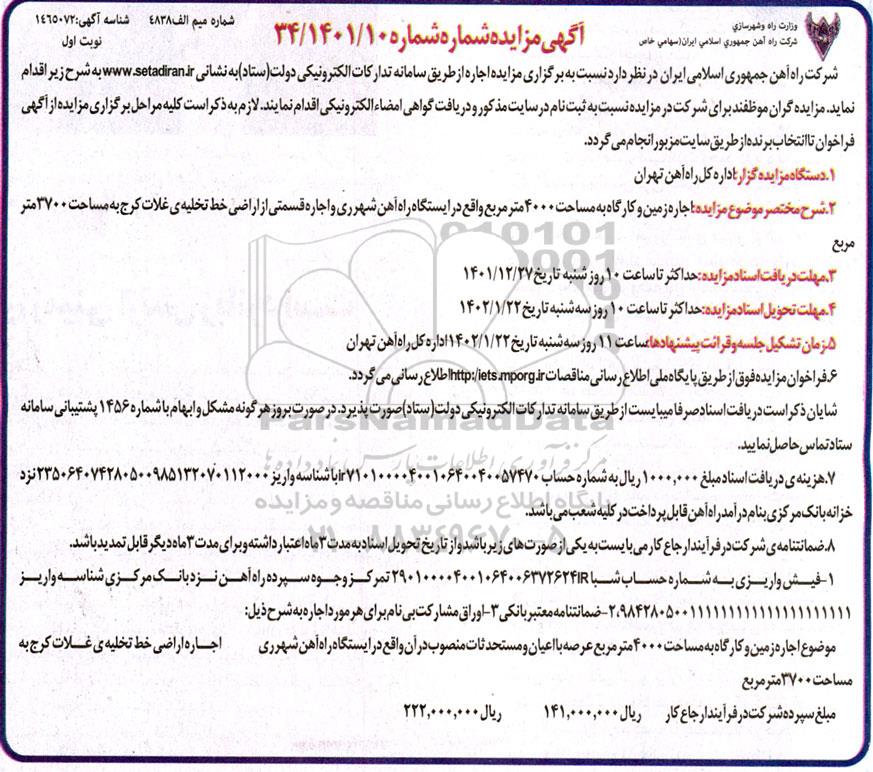 وزارت راه وشهرسازي
شرکت راه آهن جمهوري اسلامي ايران(سهامي خاص
آگهی مزایده شماره شماره ۳۴/۱۴۰۱/۱۰
شماره میم الف ۴۸۳۸
شناسه آگهی: ۱۴۶۵۰۷۲
نوبت اول
شرکت راه آهن جمهوری اسلامی ایران در نظر دارد نسبت به برگزاری مزایده اجاره از طریق سامانه تدارکات الکترونیکی دولت(ستاد) به نشانی www.setadiran.ir به شرح زیر اقدام
نماید. مزایده گران موظفند برای شرکت در مزایده نسبت به ثبت نام در سایت مذکور و دریافت گواهی امضاء الکترونیکی اقدام نمایند. لازم به ذکر است کلیه مراحل برگزاری مزایده از آگهی
فراخوان تا انتخاب برنده از طریق سایت مزبور انجام می گردد.
۱.دستگاه مزایده گزار: اداره کل راه آهن تهران
۲.شرح مختصر موضوع مزایده: اجاره زمین و کارگاه به مساحت ۴۰۰۰ متر مربع واقع در ایستگاه راه آهن شهر ری و اجاره قسمتی از اراضی خط تخلیه ی غلات کرج به مساحت ۳۷۰۰ متر
مربع
۳.مهلت دریافت اسناد مزایده: حداکثر تا ساعت ۱۰ روز شنبه تاریخ ۱۴۰۱/۱۲/۲۷
۴.مهلت تحویل اسناد مزایده: حداکثر تا ساعت ۱۰ روز سه شنبه تاریخ ۱۴۰۲/۱/۲۲
۵.زمان تشکیل جلسه و قرائت پیشنهادها: ساعت ۱۱ روز سه شنبه تاریخ ۱۴۰۲/۱/۲۲ اداره کل راه آهن تهران
۶.فراخوان مزایده فوق از طریق پایگاه ملی اطلاع رسانی مناقصات http:/iets.mporg.ir اطلاع رسانی می گردد.
شایان ذکر است دریافت اسناد صرفا میبایست از طریق سامانه تدارکات الکترونیکی دولت(ستاد) صورت پذیرد. در صورت بروز هر گونه مشکل و ابهام با شماره ۱۴۵۶ پشتیبانی سامانه
ستاد تماس حاصل نمایید.
۷.هزینه ی دریافت اسناد مبلغ ۱,۰۰۰,۰۰۰ ریال به شماره حساب ir۷۱۰۱۰۰۰۰۴۰۰۱۰۶۴۰۰۴۰۰۵۷۴۷۰ با شناسه واریز ۲۳۵۰۶۴۰۷۴۲۸۰۵۰۰۹۸۵۱۳۲۰۷۰۱۱۲۰۰۰ نزد
خزانه بانک مرکزی بنام درآمد راه آهن قابل پرداخت در کلیه شعب می باشد.
۸.ضمانتنامه ی شرکت در فرآیند ارجاع کار می بایست به یکی از صورت های زیر باشد و از تاریخ تحویل اسناد به مدت ۳ ماه اعتبار داشته و برای مدت ۳ ماه دیگر قابل تمدید باشد.
۱-فیش واریزی به شماره حساب شبا IR۲۹۰۱۰۰۰۰۴۰۰۱۰۶۴۰۰۶۳۷۲۶۲۴ تمرکز وجوه سپرده راه آهن نزد بانک مرکزی شناسه واریز
۹۸۴۲۸۰۵۰۰۱۱۱۱۱۱۱۱۱۱۱۱۱۱۱۱۱۱۱۱۱ ۲-ضمانتنامه معتبر بانکی ۳-اوراق مشارکت بی نام برای هر مورد اجاره به شرح ذیل:
موضوع اجاره زمین و کارگاه به مساحت ۴۰۰۰ متر مربع عرصه با اعیان و مستحدثات منصوب در آن واقع در ایستگاه راه آهن شهر ری اجاره اراضی خط تخلیه ی غلات کرج به
مساحت ۳۷۰۰ متر مربع
مبلغ سپرده شرکت در فرآیند ارجاع کار ۱۴۱,۰۰۰,۰۰۰ ریال ۲۲۲,۰۰۰,۰۰۰ ریال
ParsNamadData
مرکز فرآوری اطلاعات پارس نماد داده ها
پایگاه اطلاع رسانی مناقصه و مزایده
۰۲۱-۸۸۳۴۹۶۷۰-۵